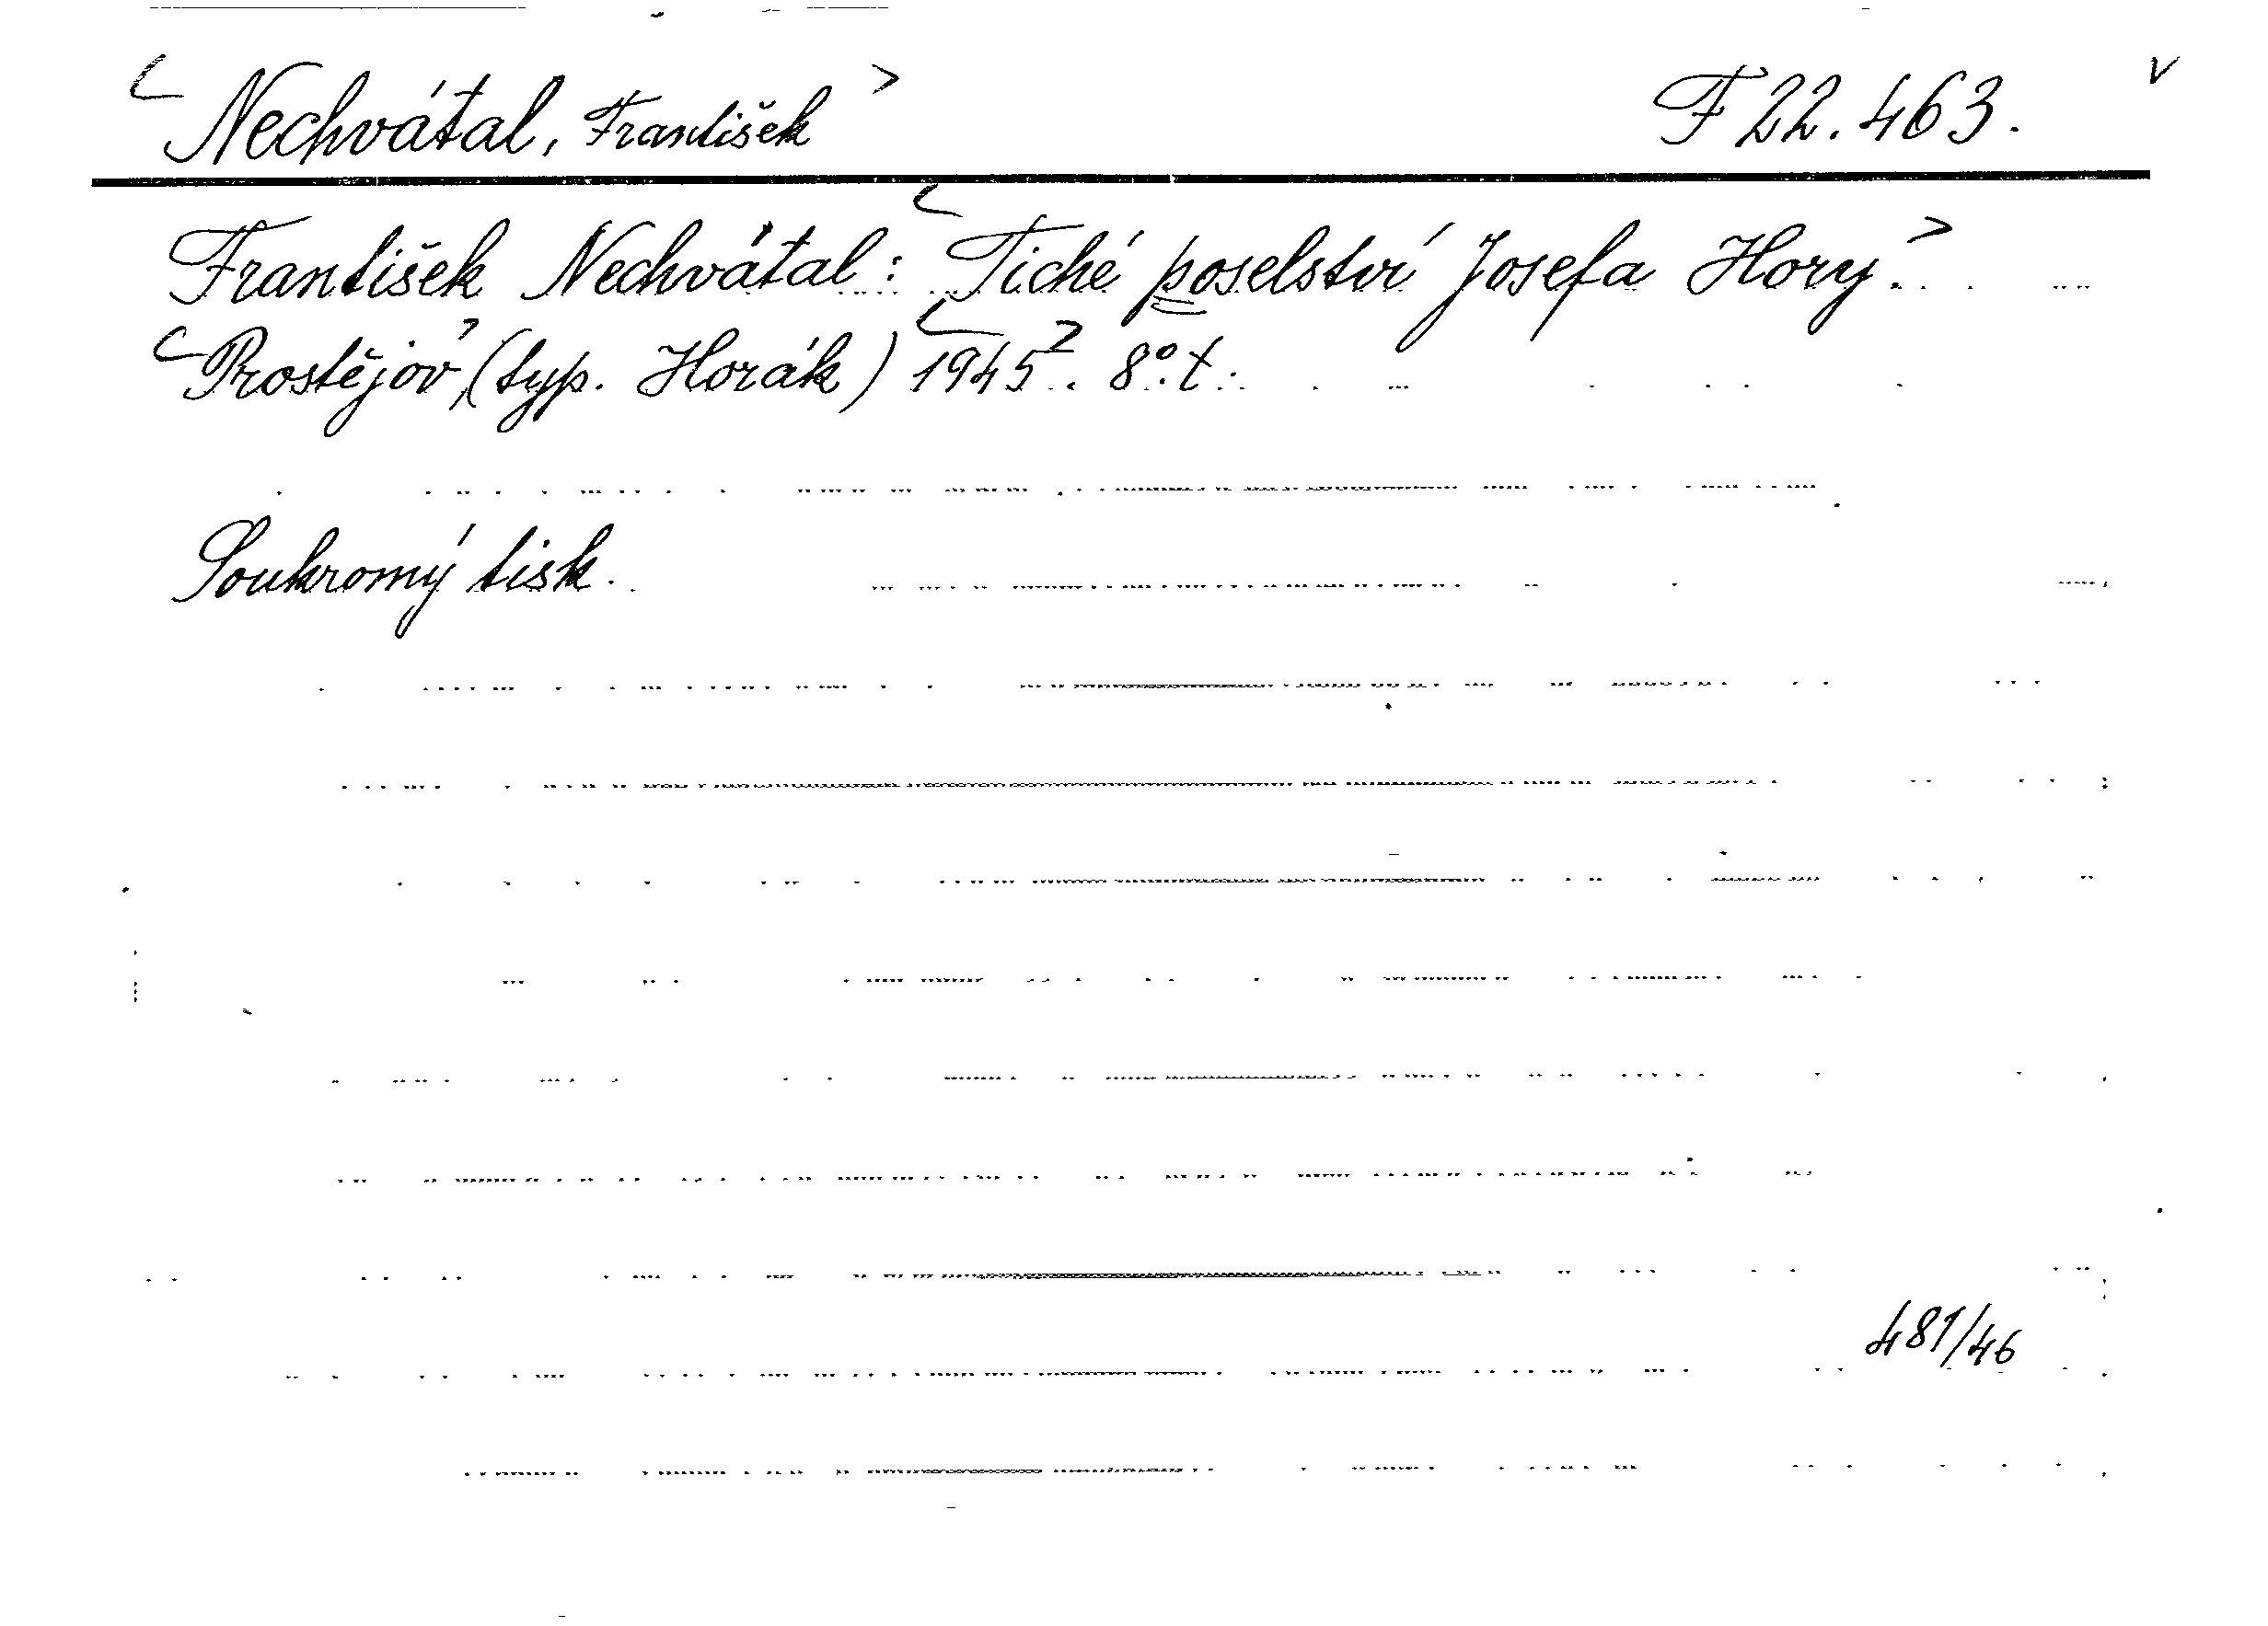 Nechvátal, František F 22.463.
František Nechvátal: Tiché poselství Josefa Hory.
Prostějov (typ. Horák) 1945. 8°. t.
Soukromý tisk.
481/46